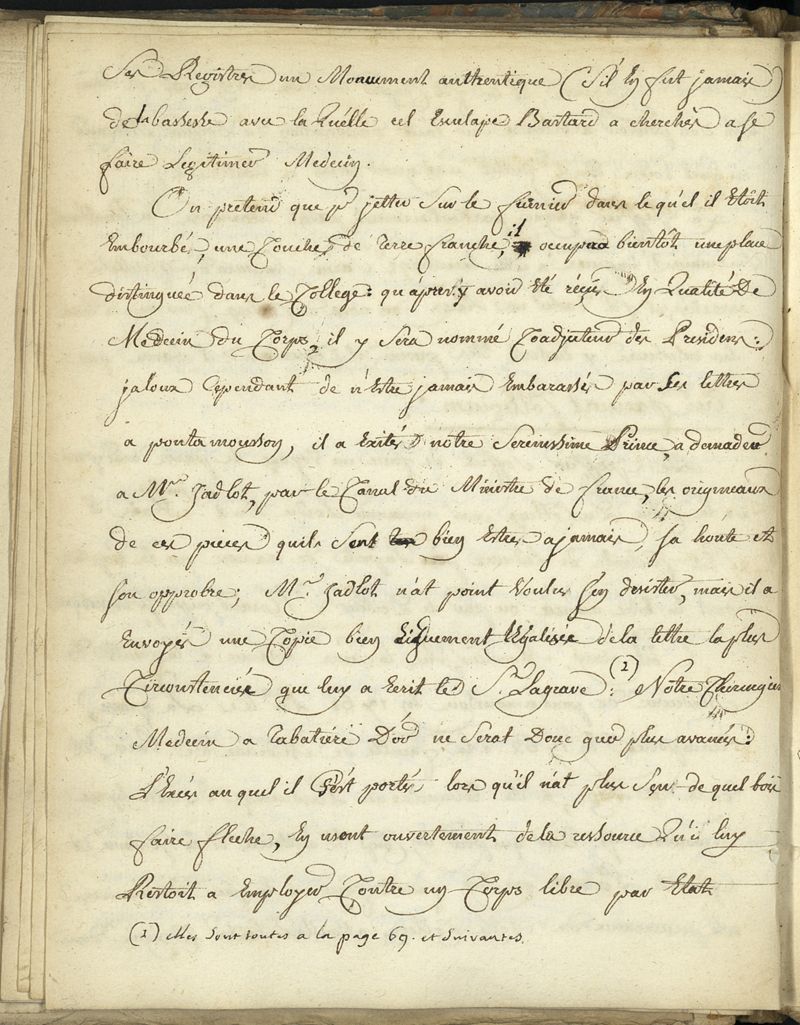 Ses Registres un Monument authentique (s'il En fut jamais)
de la bassesse avec la quélle cet Esculape Bastard a cherchés a se
faire Legitimer Medecin.
On pretend que pr jetter sur le fumier dans le qu'el il Etôit
Embourbés, une Couche de terre franche, il occupera bientôt une place
distinguée dans le College: qu'apres y avoir Eté réçus En Qualité De
Medecin du Corps, il y Sera nommé Coadjuteur des Presidens:
jaloux Cependant de n'Estre jamais Embarassés par ses lettres
a pontamousson, il a Exités notre Serenissime Prince, a demander
a Mr. Jadlot, par le Canal du Ministre de france, les origineaux
de ces pieces quils Sont bien Estre ajamais, sa honte et
son opprobre; Mr. Jadlot n'at point Voulus s'en desister, mais il a
Envoyés une Copie bien légalisée de la lettre la plus
Circonstenciée que luy a Ecrit le Sr. Lagrave: (1) Notre Chirurgien
Medecin a tabatiére D'or ne Serat Donc guer plus avancés:
L'Exces au quel il s'ést portés lors qu'il n'at plus Sçu de quel bois
faire fleche, En usant ouvertement de la ressource Qu'il luy
Restoit a Employer Contre un Corps libre par Etat
(1) elles sont toutes a la page 69. et suivantes.